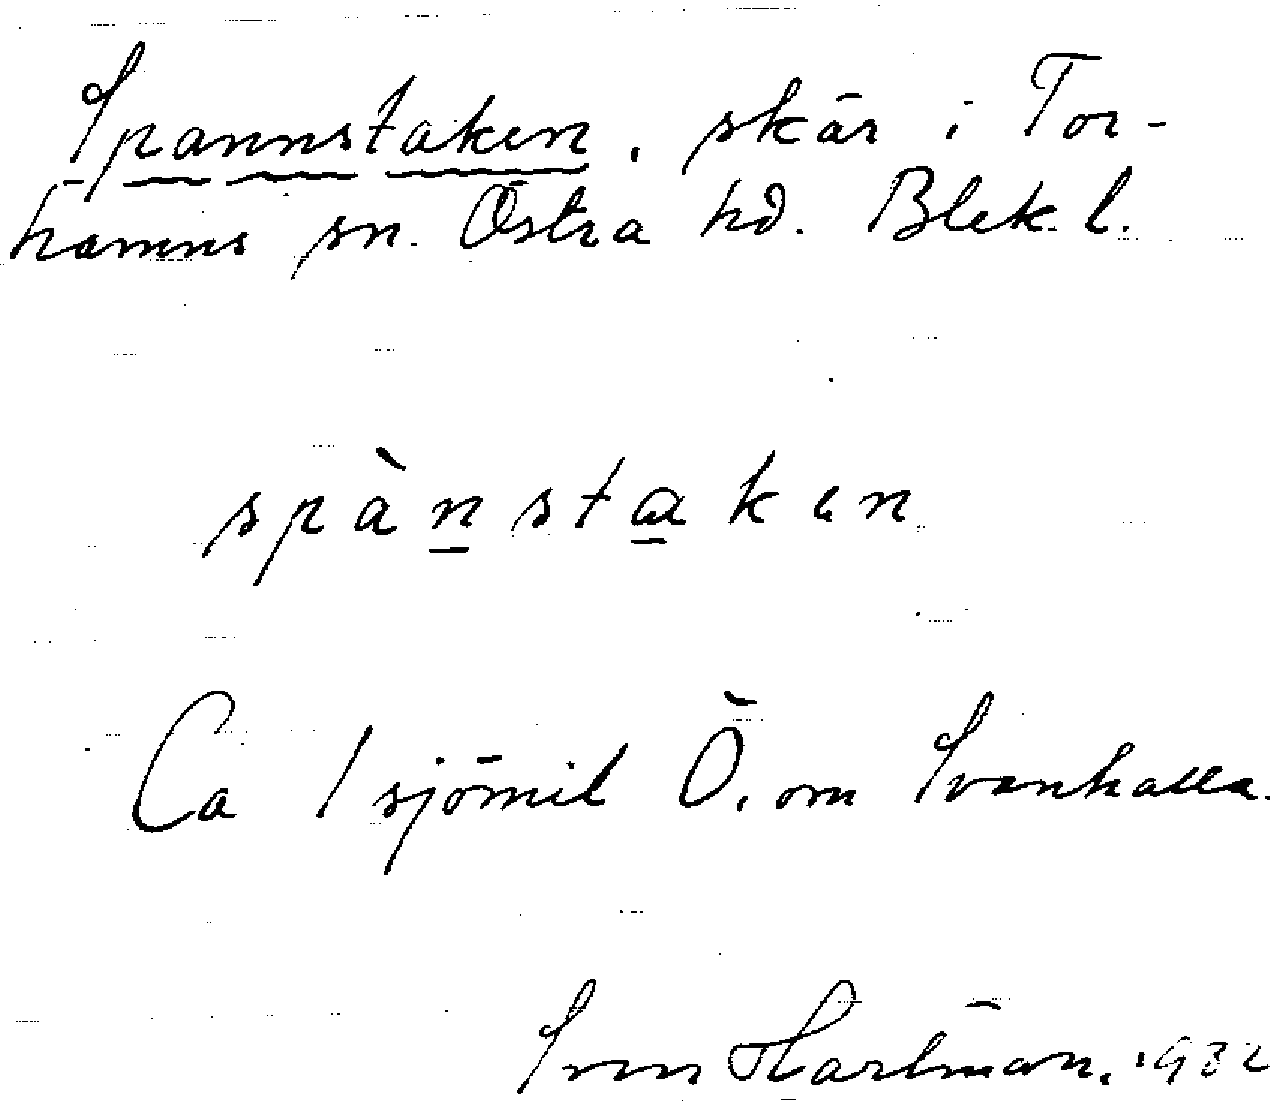 Spannstaken, skär i Tor-
hamns sn. Östra hd. Blek. l.
spànstaken
Ca 1 sjömil Ö. om Svenkalla.
Sven Hartman. 1932